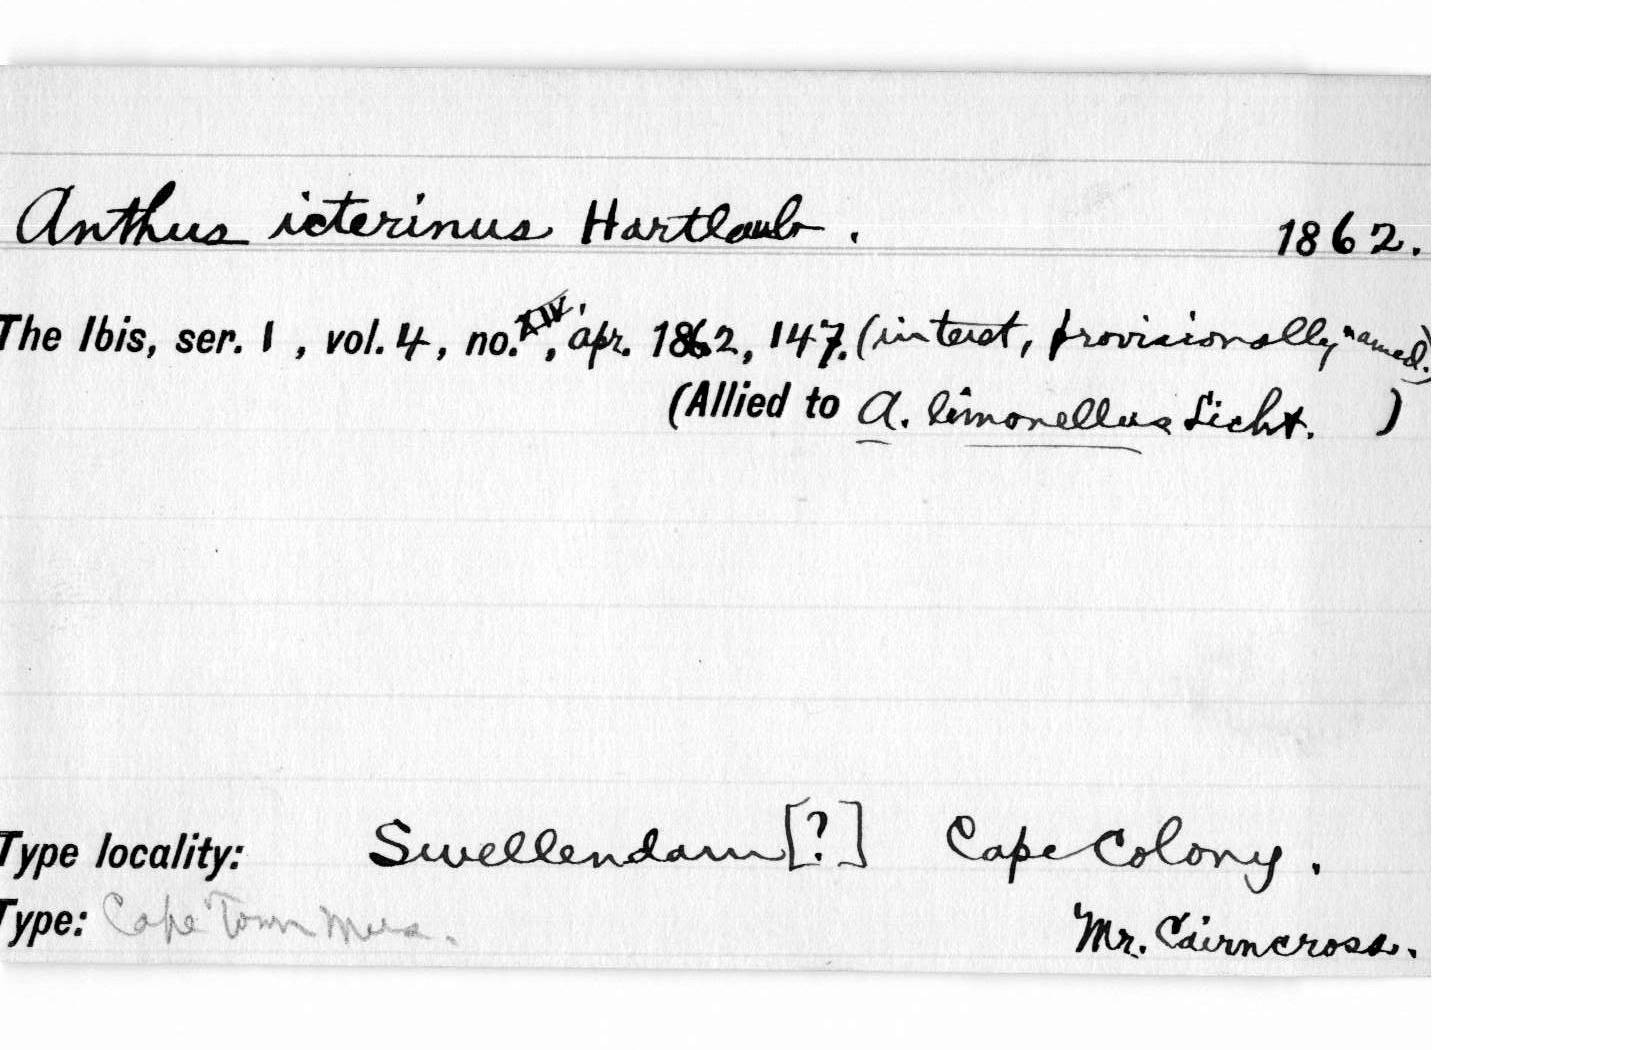 Anthus icterinus Hartlaub. 1862.
The Ibis, ser. 1, vol. 4, no. XIV, apr. 1862, 147. (in text, provisionally named.)
(Allied to A. limonellus Licht. )
Type locality: Swellendam [?] Cape Colony.
Type: Cape Town Mus. Mr. Cairncross.